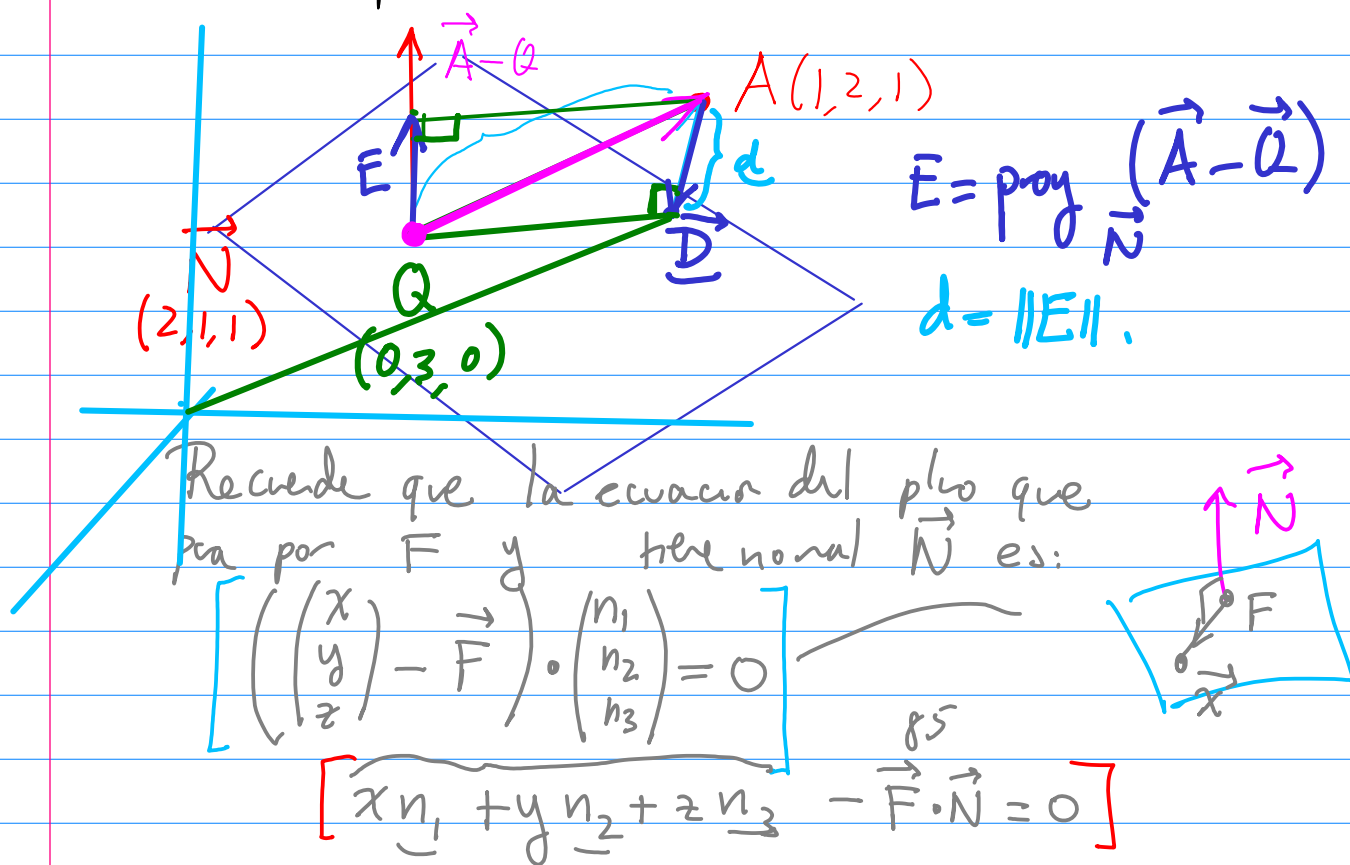 A⃗ - Q
A(1,2,1)
E
d
E = proy_N⃗ (A⃗ - Q⃗)
N
(2,1,1)
Q
(0,3,0)
D
d = ||E||.
Recuerde que la ecuacion del plano que
pasa por F y tiene normal N⃗ es:
N⃗
F
x⃗
((x y z) - F⃗) · (n1 n2 n3) = 0
85
x n1 + y n2 + z n3 - F⃗·N⃗ = 0